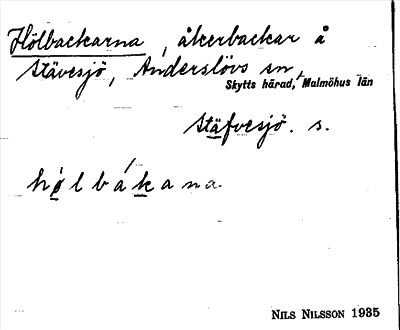 Hölbackarna, åkerbackar å
Stävesjö, Anderslövs sn,
Skytts härad, Malmöhus län
Stäfvesjö. s.
hølbákana.
NILS NILSSON 1935